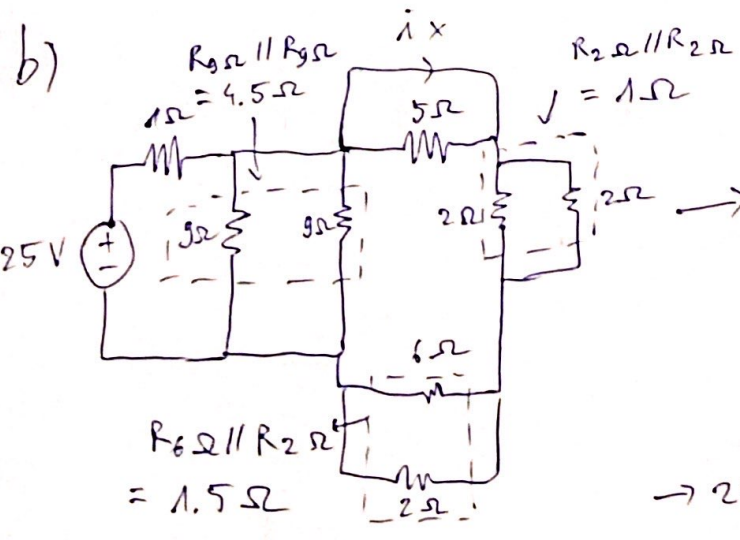 b)
i x
R9Ω // R9Ω
= 4.5 Ω
R2Ω // R2Ω
= 1Ω
1Ω
5Ω
25V
+
-
9Ω
9Ω
2Ω
2Ω
6Ω
R6Ω // R2Ω
= 1.5Ω
2Ω
→ 2